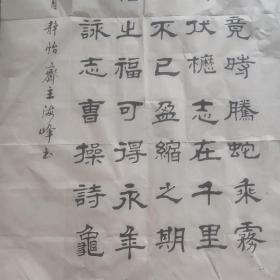 竟時騰蛇乘霧
伏櫪志在千里
不已盈縮之期
之福可得永年
詠志曹操詩龜
月靜怡齋主海峰书